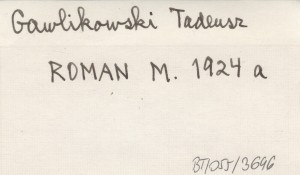 Gawlikowski Tadeusz
ROMAN M. 1924 a
BT/055/3696